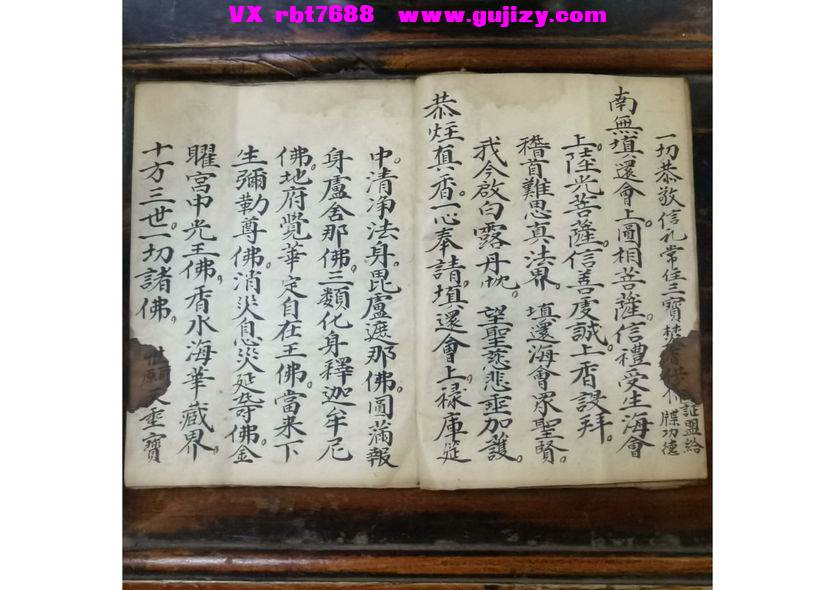 VX rbt7688 www.gujizy.com
一切恭敬信礼常住三寶焚香供
証盟給
牒功德
南無填還會上圓相菩薩。信禮受生海會
上。陸光菩薩。信善虔誠。上香設拜。
稽首難思真法界。 填還海會眾聖賢。
我今啟白露丹忱。 望聖慈悲垂加護。
恭炷真香。一心奉請。填還會上。祿庫筵
中。清净法身毘盧遮那佛。圓滿報
身盧舍那佛。三類化身釋迦牟尼
佛。地府覺華定自在王佛。當来下
生彌勒尊佛。消災息災延壽佛。金
曜宮中光王佛。香水海華藏界。
十方三世一切諸佛。
垂寶